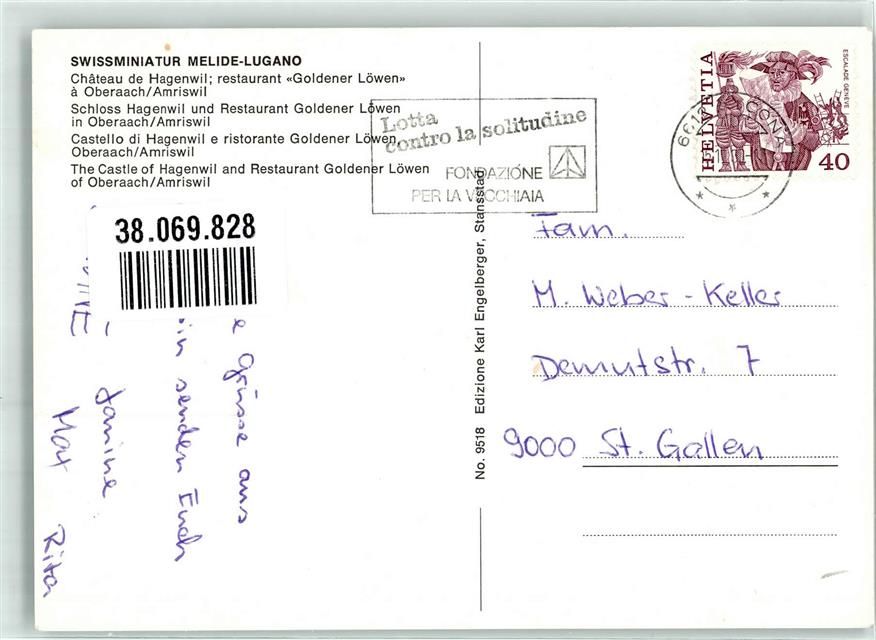 SWISSMINIATUR MELIDE-LUGANO
Château de Hagenwil; restaurant «Goldener Löwen»
à Oberaach/Amriswil
Schloss Hagenwil und Restaurant Goldener Löwen
in Oberaach/Amriswil
Castello di Hagenwil e ristorante Goldener Löwen
Oberaach/Amriswil
The Castle of Hagenwil and Restaurant Goldener Löwen
of Oberaach/Amriswil
38.069.828
e Grüsse aus
senden Euch
Janine
Max
Rita
No. 9518 Edizione Karl Engelberger, Stansstad
Lotta
contro la solitudine
FONDAZIONE
PER LA VECCHIAIA
HELVETIA
ESCALADE GENÈVE
40
Fam.
M. Weber-Keller
Demutstr. 7
9000 St. Gallen